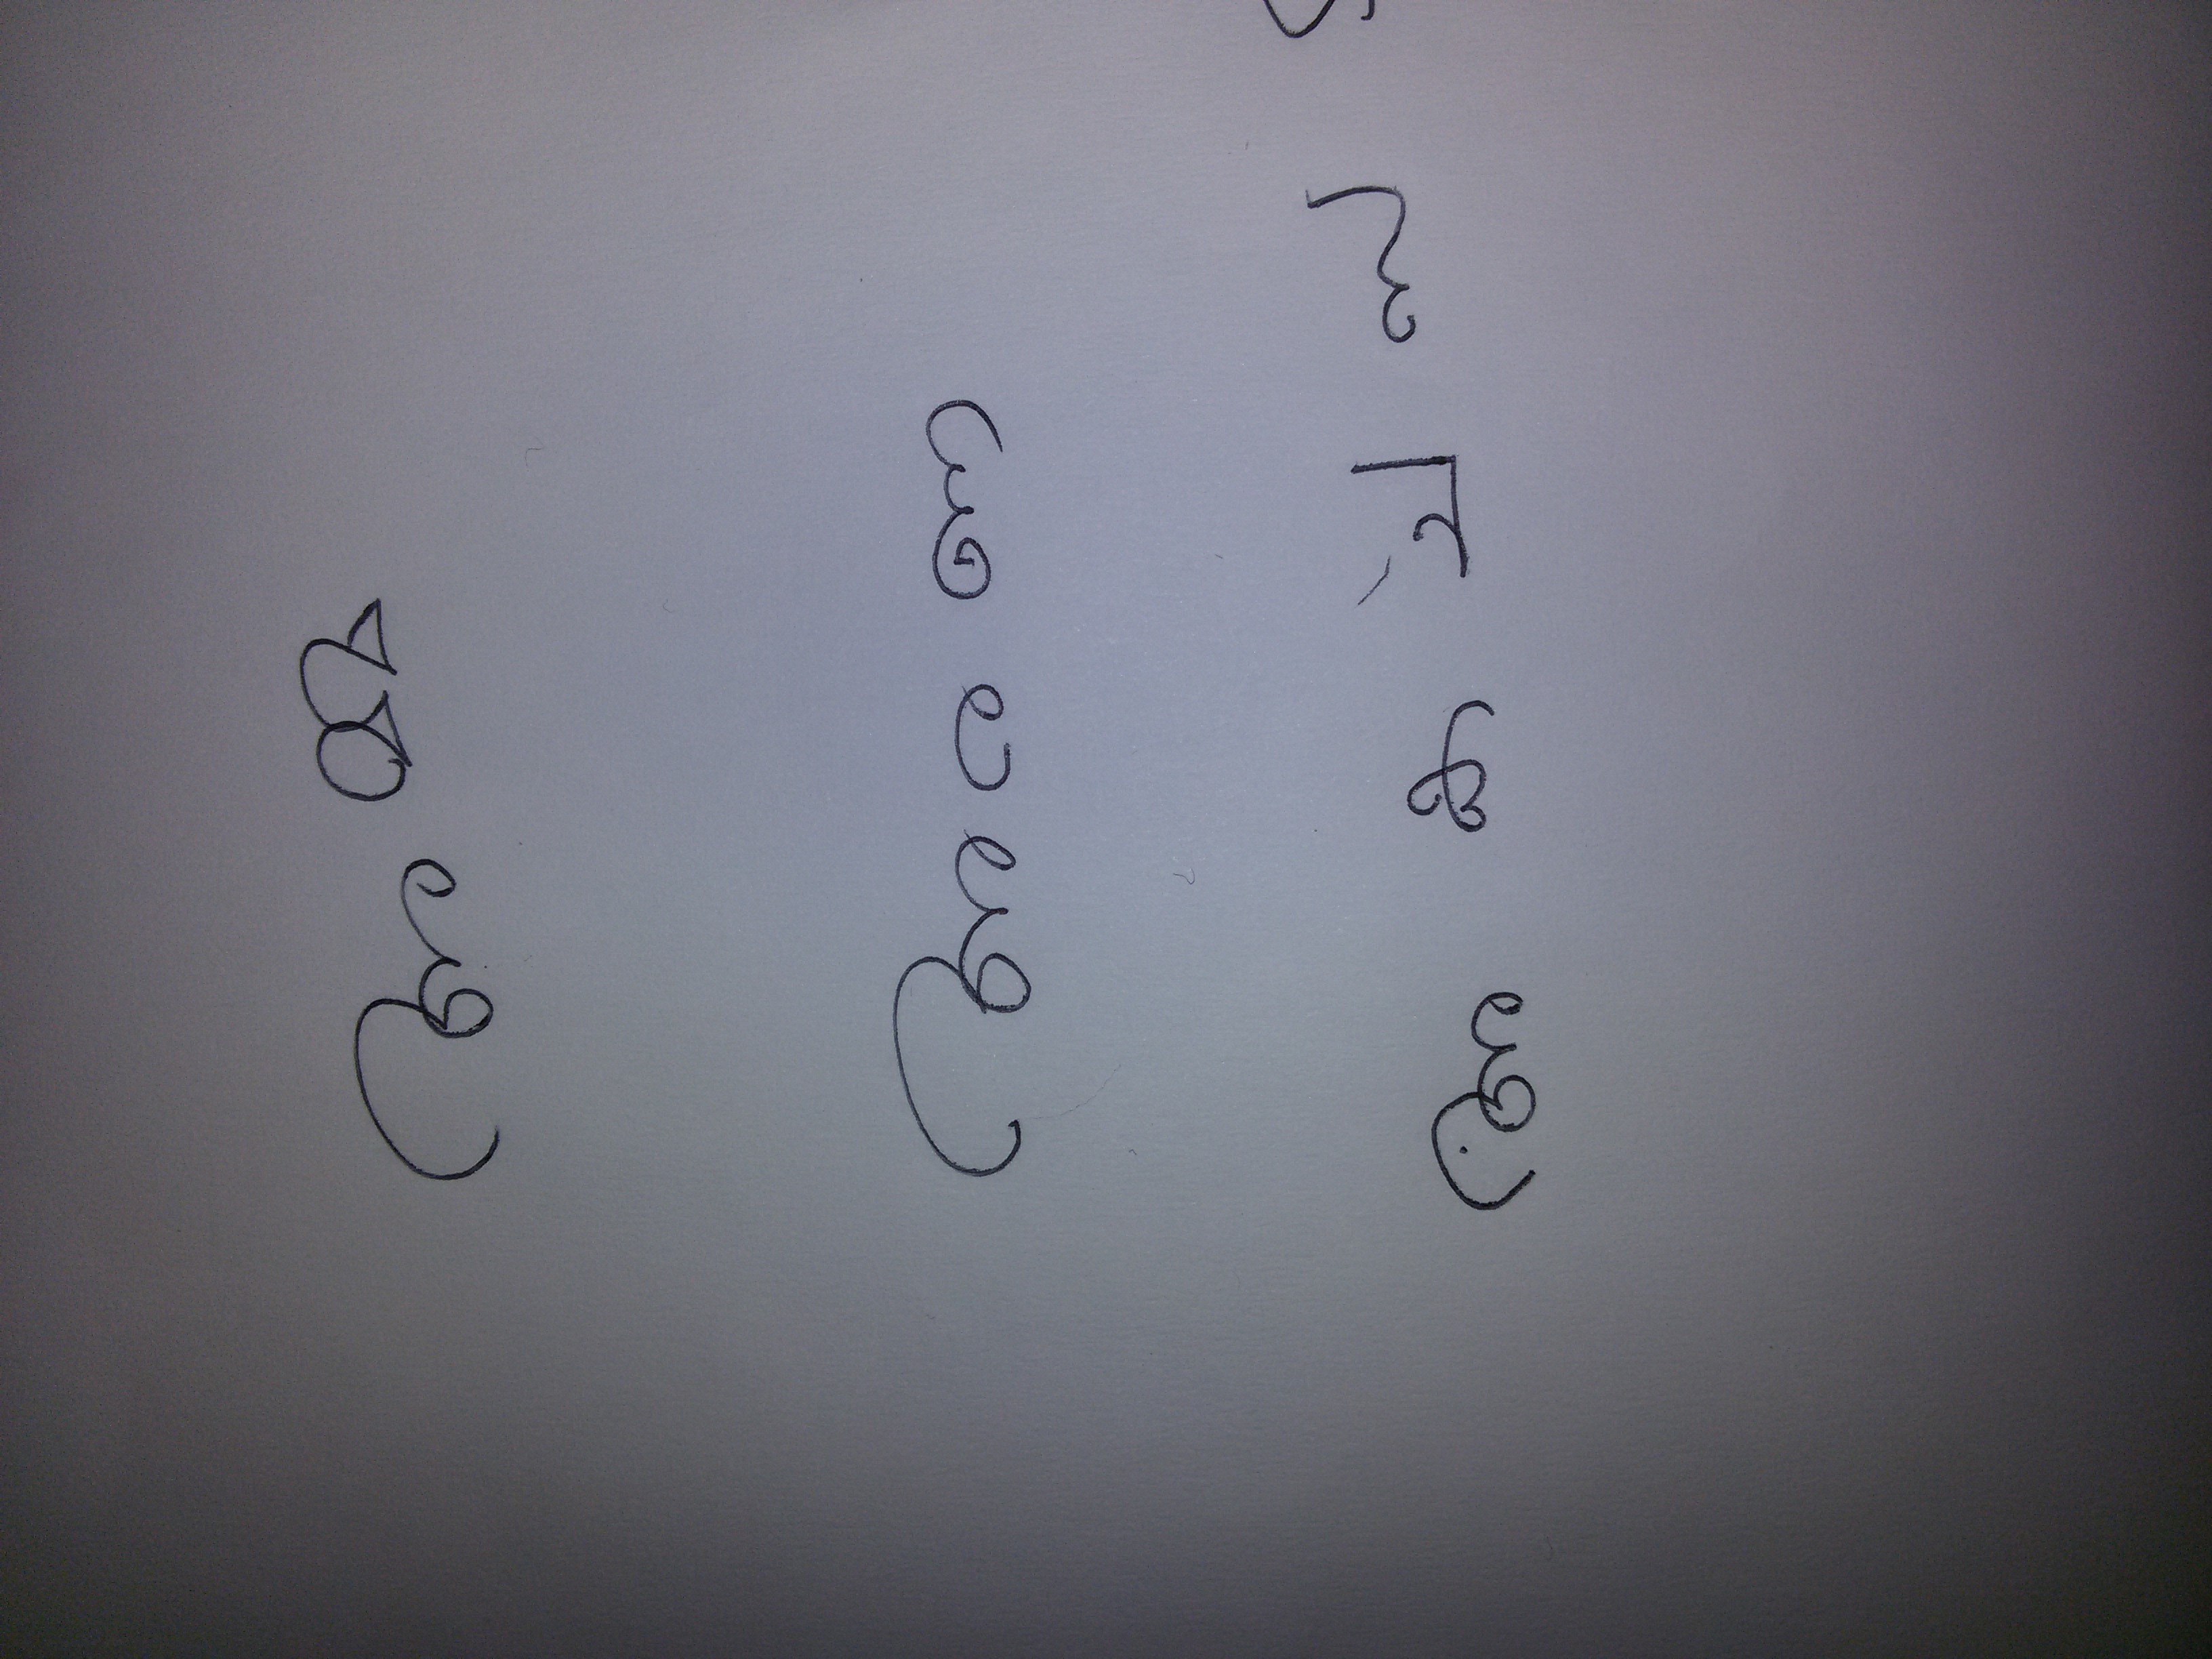 അമ്മ
അരണ
അ ക ച സ